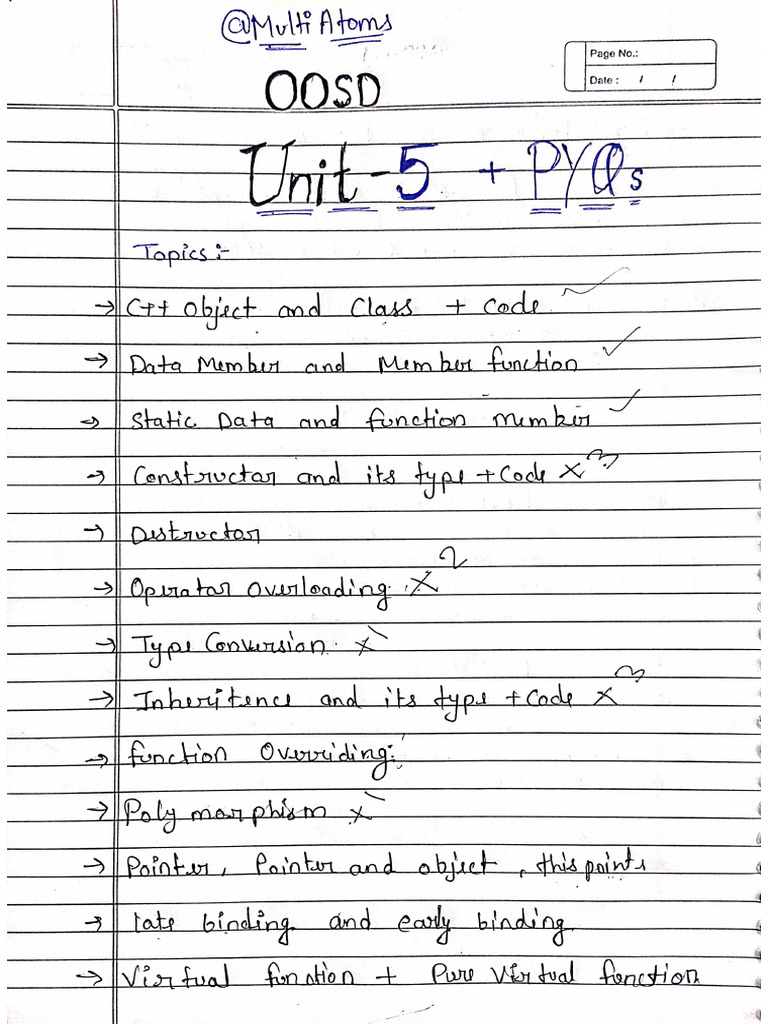 @Multi Atoms
OOSD
Page No.:
Date : / /
Unit-5 + PYQs
Topics:-
→ C++ Object and Class + Code
→ Data Member and Member function
→ Static Data and function member
→ Constructor and its type + Code x3
→ Destructor
→ Operator Overloading. x2
→ Type Conversion. x1
→ Inheritence and its type + Code x3
→ function Overriding:
→ Polymorphism x1
→ Pointer, Pointer and object, this points
→ late binding and early binding
→ Virtual function + Pure Virtual function